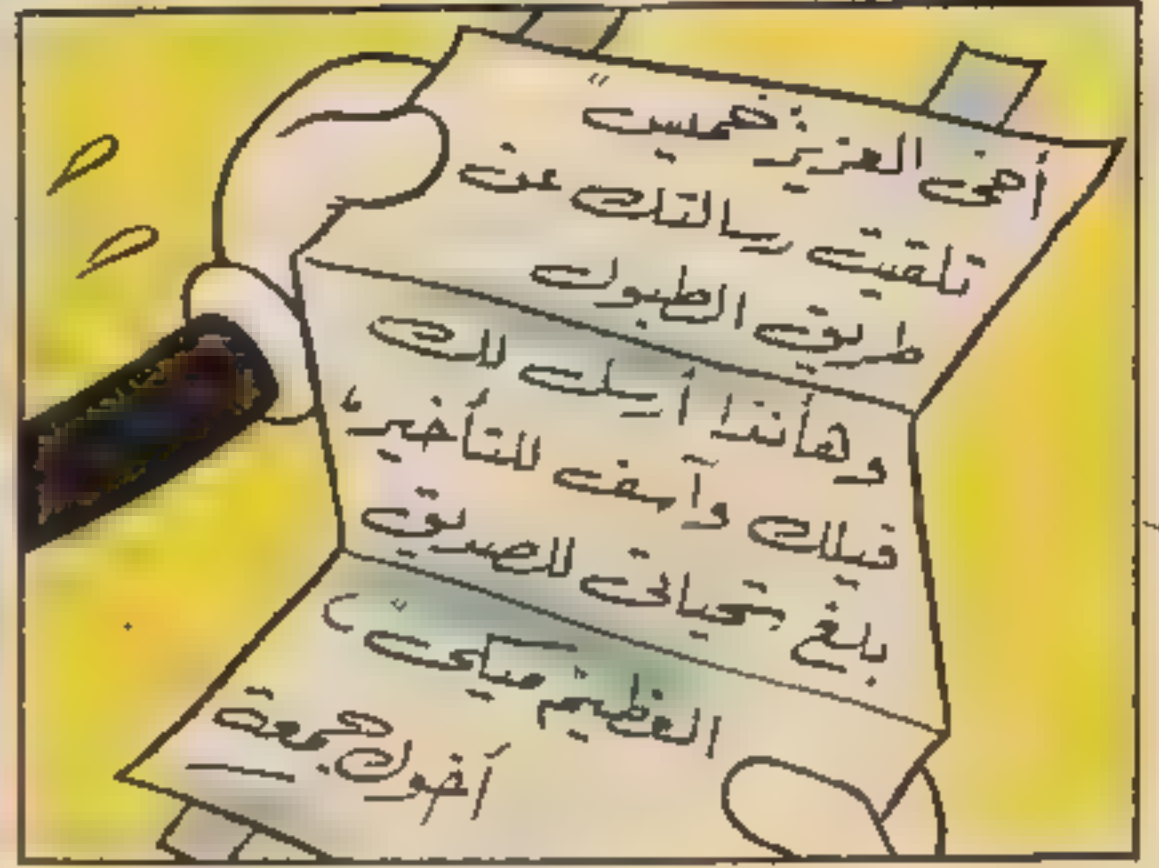 أخى العزيز خميس"
تلقيت رسالتك عن
طريق الطبول
وهأنذا أرسل لك
فيلك وآسف للتأخير،
بلغ تحياتى للصديق
العظيم" ميكى"
أخوك جمعة